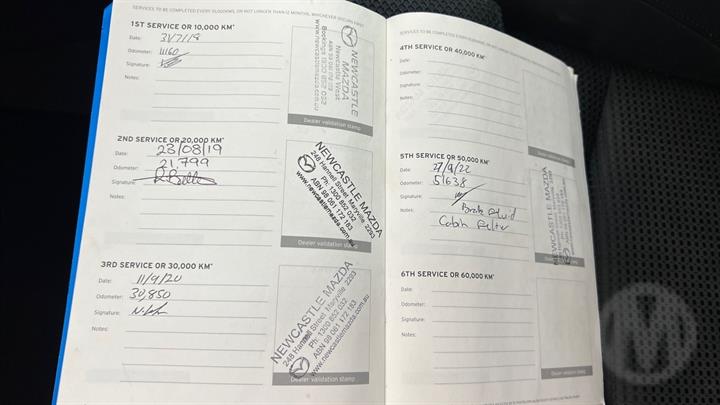 SERVICES TO BE COMPLETED EVERY 10,000KM, OR NOT LONGER THAN 12 MONTHS, WHICHEVER OCCURS FIRST
1ST SERVICE OR 10,000 KM*
Date: 31/7/18
Odometer: 11160
Signature:
Notes:
NEWCASTLE
MAZDA
Newcastle West
Bookings 1300 852 052
www.newcastlemazda.com.au
Dealer validation stamp
2ND SERVICE OR 20,000 KM*
Date: 23/08/19
Odometer: 21,799
Signature:
Notes:
NEWCASTLE MAZDA
248 Hannell Street, Maryville 2293
Ph: 1300 852 032
ABN 98 061 172 183
www.newcastlemazda.com.au
Dealer validation stamp
3RD SERVICE OR 30,000 KM*
Date: 11/9/20
Odometer: 30,850
Signature:
Notes:
NEWCASTLE MAZDA
248 Hannell Street, Maryville 2293
Ph: 1300 852 032
ABN 98 061 172 183
www.newcastlemazda.com.au
Dealer validation stamp
4TH SERVICE OR 40,000 KM*
Date:
Odometer:
Signature:
Notes:
Dealer validation stamp
5TH SERVICE OR 50,000 KM*
Date: 27/9/22
Odometer: 51638
Signature:
Notes: Brake Fluid
Cabin Filter
NEWCASTLE MAZDA
Dealer validation stamp
6TH SERVICE OR 60,000 KM*
Date:
Odometer:
Signature:
Notes:
Dealer validation stamp